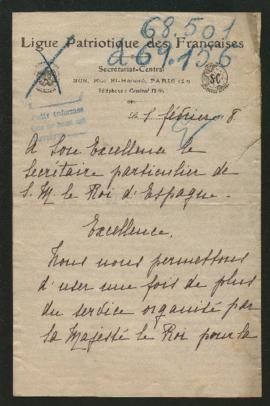 68.501
Ligue Patriotique des Françaises
a 69.150
Secrétariat-Central
PARIS
Téléphone: Central
SC
Le 1 février 8.
A Son Excellence le
Secrétaire particulier de
S. M. le Roi d'Espagne.
Excellence,
Nous nous permettons
d'user une fois de plus
du service organisé par
sa Majesté le Roi pour la